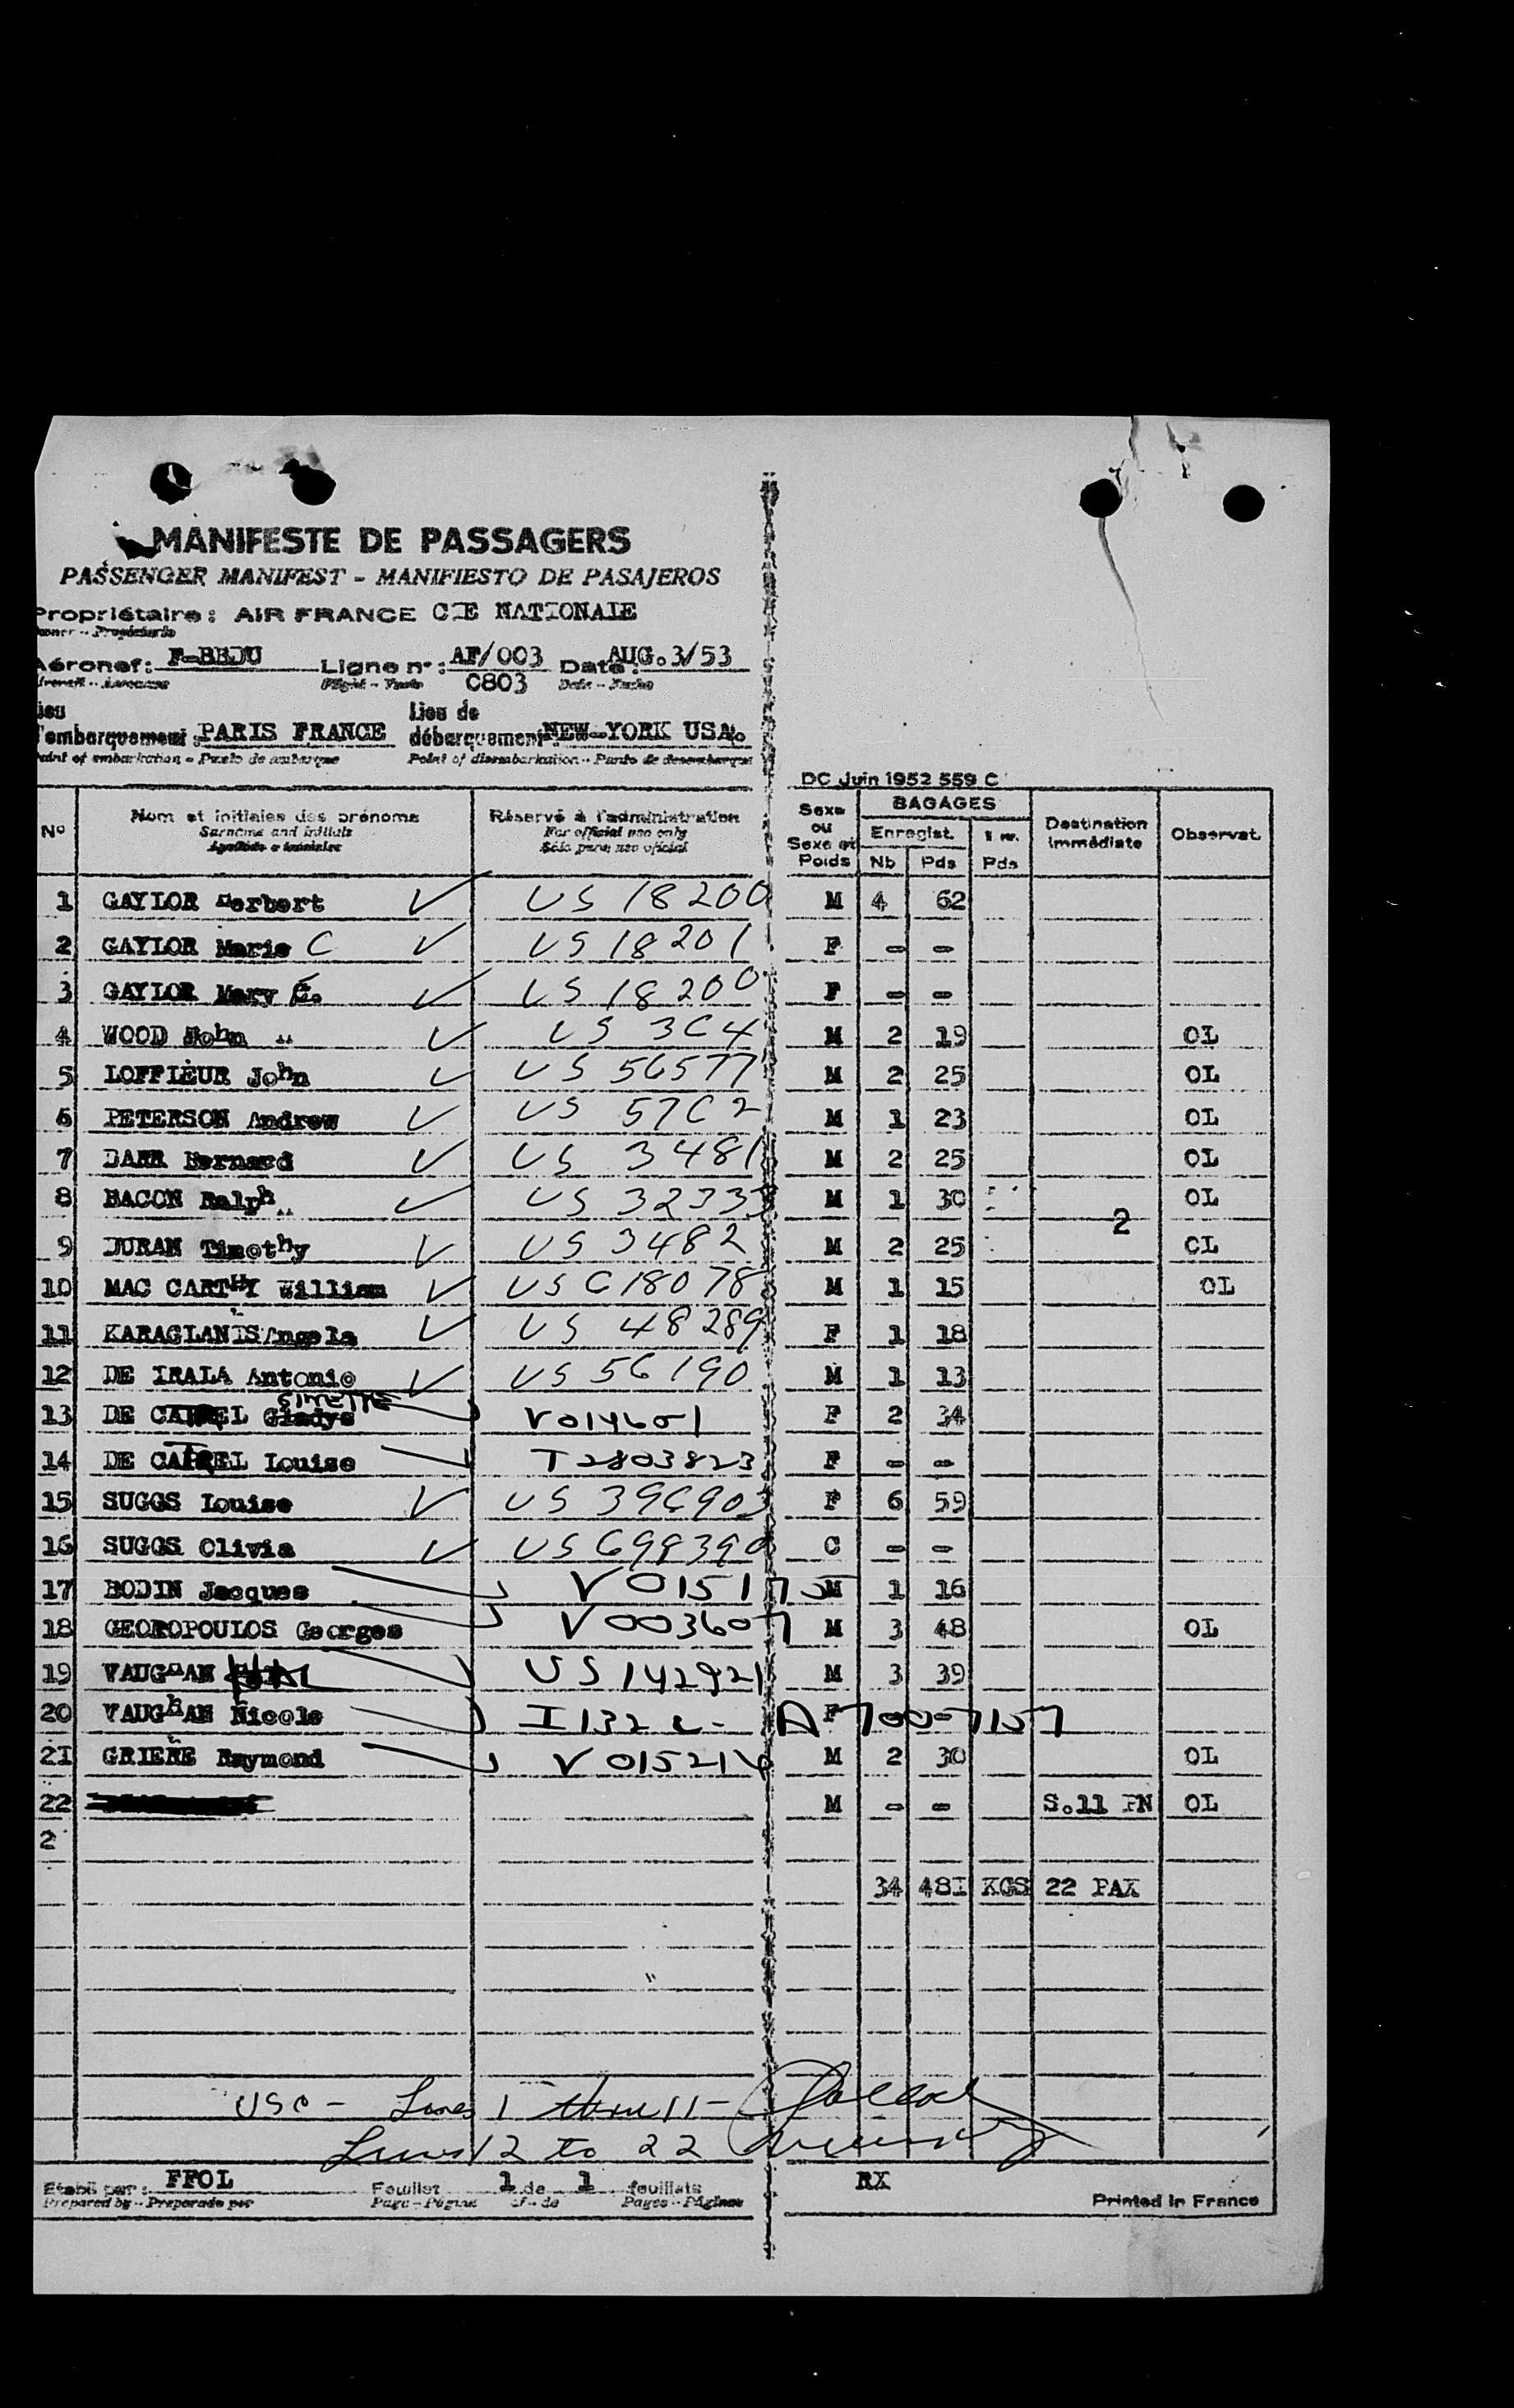 MANIFESTE DE PASSAGERS
PASSENGER MANIFEST - MANIFIESTO DE PASAJEROS
Propriétaire : AIR FRANCE CIE NATIONALE
Aéronef : F-BEDU Ligne n° : AF/003 Date : AUG.3/53
0803
Lieu de
l'embarquement : PARIS FRANCE débarquement : NEW-YORK USA.
Point of embarkation - Punto de embarque Point of disembarkation - Punto de desembarque
DC Juin 1952 559 C
N° Nom et initiales des prénoms Réservé à l'administration Sexe ou Sexe et Poids BAGAGES Enregist. Nb Pds Pds Destination immédiate Observat.
Surname and initials For official use only
Apellido e iniciales Sólo para uso oficial
1 GAYLOR Herbert US 18200 M 4 62
2 GAYLOR Marie C US 18201 F - -
3 GAYLOR Mary E. US 18200 F - -
4 WOOD John US 3C4 M 2 19 OL
5 LOFFLEUR John US 56577 M 2 25 OL
6 PETERSON Andrew US 57C2 M 1 23 OL
7 DARR Bernard US 3481 M 2 25 OL
8 BACON Ralph US 32333 M 1 30 OL
2
9 DURAN Timothy US 3482 M 2 25 OL
10 MAC CARTHY William US C18078 M 1 15 OL
11 KARAGLANIS Angela US 48289 F 1 18
12 DE IRALA Antonio US 56190 M 1 13
13 DE Gladys V014601 F 2 34
14 DE Louise T2803823 F - -
15 SUGGS Louise US 39C903 F 6 59
16 SUGGS Olivia US 698390 C - -
17 BODIN Jacques V015175 M 1 16
18 GEOROPOULOS Georges V003607 M 3 48 OL
19 VAUGHAN US 142921 M 3 39
20 VAUGHAN Nicole I132 A7007157 F
21 GRIERE Raymond V015214 M 2 30 OL
22 M - - S.11 FN OL
2
34 481 KGS 22 PAX
USC - Lines 1 thru 11 -
Lines 12 to 22
Etabli par : FFOL Feuillet 1 de 1 feuillets RX
Prepared by - Preparado por Page - Página of - de Pages - Páginas Printed in France